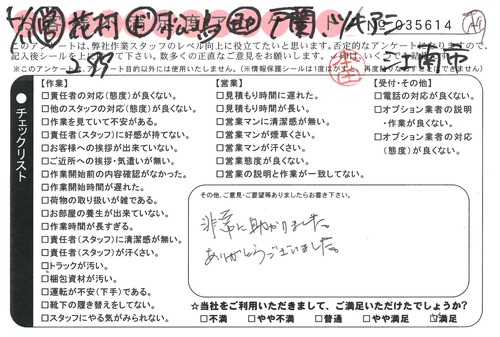 No 035614
このアンケートは、弊社作業スタッフのレベル向上に役立てたいと思います。否定的なアンケートになりますので、
チェックリスト
【作業】
□責任者の対応(態度)が良くない。
□他のスタッフの対応(態度)が良くない。
□作業を見ていて不安がある。
□責任者(スタッフ)に好感が持てない。
□お客様への挨拶が出来ていない。
□ご近所への挨拶・気遣いが無い。
□作業開始前の内容確認がなかった。
□作業開始時間が遅れた。
□荷物の取り扱いが雑である。
□お部屋の養生が出来ていない。
□作業時間が長すぎる。
□責任者(スタッフ)に清潔感が無い。
□責任者(スタッフ)が汗くさい。
□トラックが汚い。
□梱包資材が汚い。
□運転が不安(下手)である。
□靴下の履き替えをしてない。
□スタッフにやる気がみられない。
【営業】
□見積もり時間に遅れた。
□見積もり時間が長い。
□営業マンに清潔感が無い。
□営業マンが煙草くさい。
□営業マンが汗くさい。
□営業態度が良くない。
□営業の説明と作業が一致してない。
【受付・その他】
□電話の対応が良くない。
□オプション業者の説明
・作業が良くない。
□オプション業者の対応
(態度)が良くない。
その他、ご意見・ご要望等ありましたらお書き下さい。
非常に助かりました。
ありがとうございました。
☆当社をご利用いただきまして、ご満足いただけたでしょうか?
□不満 □やや不満 □普通 □やや満足 □満足